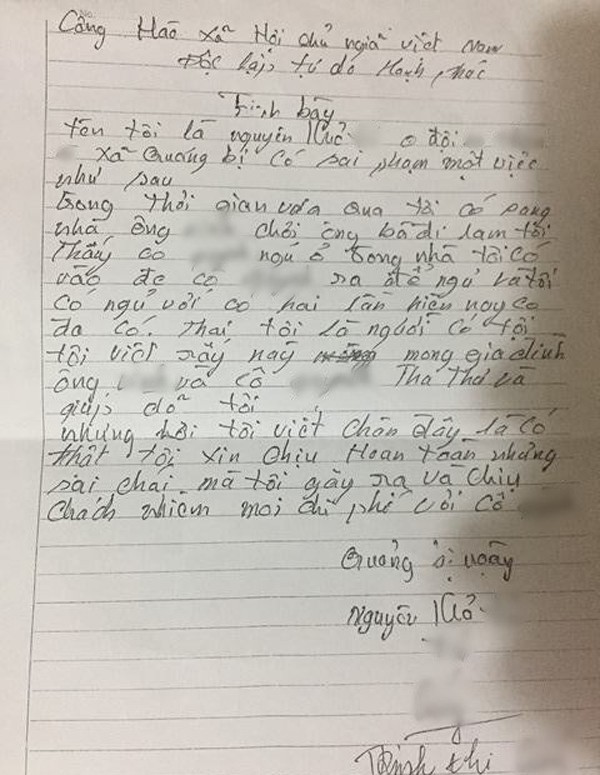 Công Hao xã Hội chủ nghĩa việt nam
Độc lập tự do Hạnh phúc
Trình bầy
tên tôi là nguyên Khổ ở đội
xã Quảng bị có sai phạm một việc
như sau
trong Thời gian vưa qua tôi có sang
nhà ông chơi ông bà đi lam tôi
Thấy co ngủ ở trong nhà tôi có
vào đe co ra để ngủ và tôi
có ngủ với cô hai lân hiên nay co
đa có. Thai tôi là người có tội
tôi viết giấy nay mong gia đình
ông và cô Tha Thư và
giúp đỡ tôi
nhưng lời tôi viết chên đây là có
thật tôi xin chịu Hoan toàn nhưng
sai chai mà tôi gây ra và chịu
chách nhiêm moi chi phí với cô
Quảng bị ngày
Nguyên Khổ